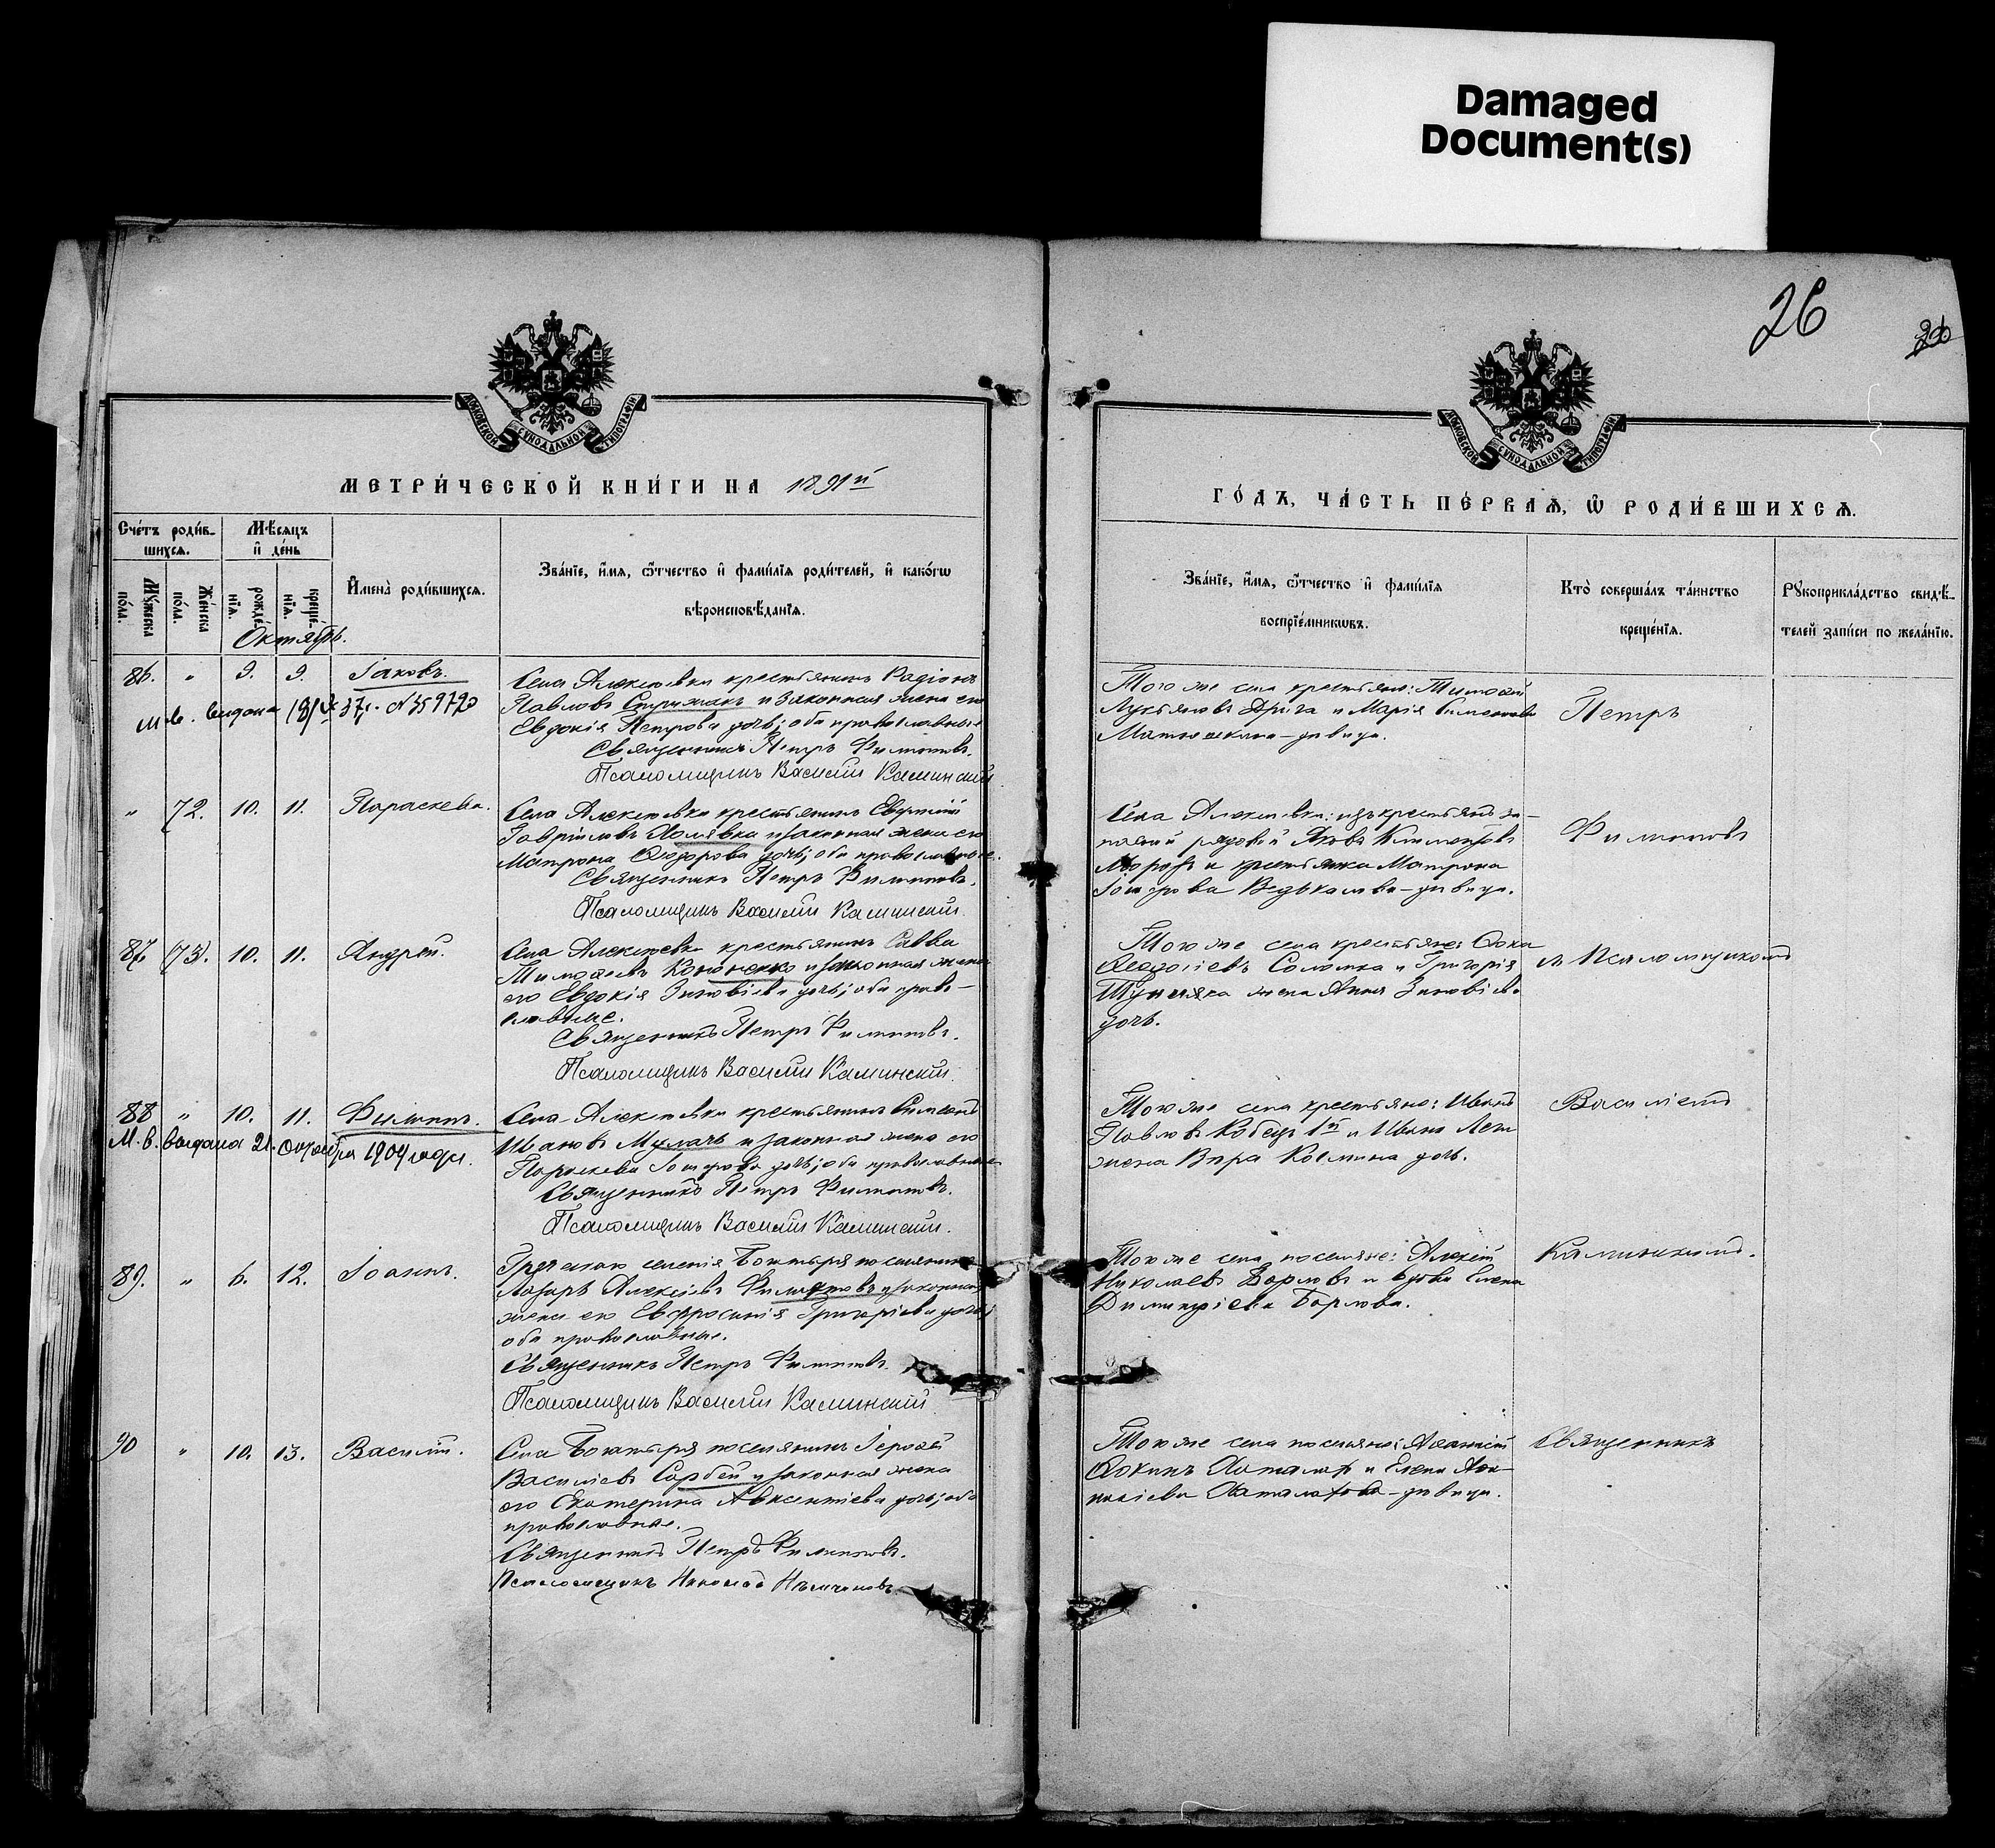 Damaged
Document(s)
26
МОСКОВСКОЙ СѴНОДАЛЬНОЙ ТИПОГРАФІИ
МОСКОВСКОЙ СѴНОДАЛЬНОЙ ТИПОГРАФІИ
МЕТРИ́ЧЕСКОЙ КНИ́ГИ НА 1891й
ГО́ДЪ, ЧА́СТЬ ПЕ́РВАѦ, Ѡ҆ РОДИ́ВШИХСѦ.
Сче́тъ роди́в-
шихсѧ.
Мꙋ́жеска по́ла.
Же́нска по́ла.
Мѣ́сѧцъ
и҆ де́нь
рожде́-нїѧ.
креще́-нїѧ.
И҆мена̀ роди́вшихсѧ.
Зва́нїе, и҆́мѧ, ѻ҆́тчество и҆ фами́лїѧ роди́телей, и҆ како́гѡ
вѣроисповѣ́данїѧ.
Зва́нїе, и҆́мѧ, ѻ҆́тчество и҆ фами́лїѧ
воспрїе́мникѡвъ.
Кто̀ соверша́лъ та́инство
креще́нїѧ.
Рꙋкоприкла́дство свидѣ́-
телей за́писи по жела́нїю.
Октябрь.
86. " 9. 9. Іаковъ.
Села Алексѣевки крестьянинъ Радіонъ
Павловъ Стрижакъ и законная жена его
Евдокія Петрова дочь; оба православные
Священникъ Петръ Филиповъ.
Псаломщикъ Василій Каминскій
М.в. выдана 37г. № 359720
Того же села крестьяне: Тимофей
Лукьяновъ Дрига и Марія Симеонова
дѣвица.
Петръ
" 72. 10. 11. Параскева.
Села Алексѣевки крестьянинъ Евфимій
Гавріиловъ Холявка и законная жена его
Матрона Ѳеодорова дочь; оба православные.
Священникъ Петръ Филиповъ.
Псаломщикъ Василій Каминскій.
Села Алексѣевки: изъ крестьянъ за-
пасный рядовой Яковъ Климентовъ
Морозъ и крестьянка Матрона
дѣвица.
Филиповъ
87. (73). 10. 11. Андрей.
Села Алексѣевки крестьянинъ Савва
Тимофеевъ Кононенко и законная жена
его Евдокія Зиновіева дочь; оба право-
славные.
Священникъ Петръ Филиповъ.
Псаломщикъ Василій Каминскій.
Того же села крестьяне: Ѳока
Ѳеодосіевъ Соломка и Григорія
жена Анна Зиновіева
дочь.
съ Псаломщикомъ
88 " 10. 11. Филиппъ.
М.в. выдана 21. Октября 1904 года.
Села Алексѣевки крестьянинъ Симеонъ
Ивановъ Мулачъ и законная жена его
Параскева дочь; оба православные
Священникъ Петръ Филиповъ.
Псаломщикъ Василій Каминскій.
Того же села крестьяне: Иванъ
Павловъ Кобецъ 1й и Ивана
жена Вѣра Космина дочь.
Василіемъ
89. " 6. 12. Іоаннъ.
Греческаго селенія Богатыря поселянинъ
Лазарь Алексѣевъ и законная
жена его Евфросинія Григоріева дочь;
оба православные.
Священникъ Петръ Филиповъ.
Псаломщикъ Василій Каминскій
Того же села поселяне: Алексѣй
Николаевъ и вдова Елена
Димитріева Борлова.
Каминскимъ.
90 " 10. 13. Василій.
Села Богатыря поселянинъ
Василіевъ Сарбей и законная жена
его Екатерина Авксентіева дочь; оба
православные.
Священникъ Петръ Филиповъ.
Псаломщикъ Николай
Того же села поселяне: Аѳанасій
и Елена
дѣвица.
Священникъ